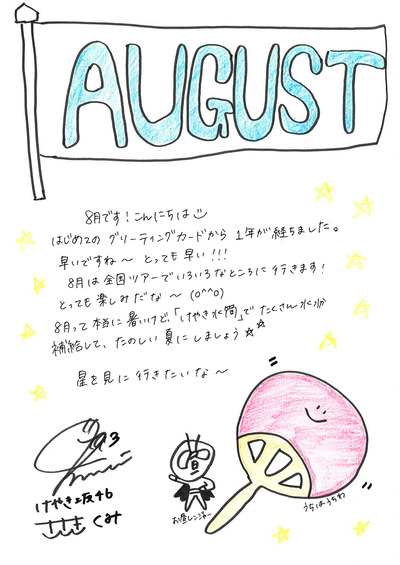 AUGUST
8月です！こんにちは
はじめての グリーティングカードから 1年が経ちました。
早いですね〜 とっても早い!!!
8月は全国ツアーでいろいろなところに行きます！
とっても楽しみだな〜 (o^^o)
8月って本当に暑いけど、「けやき水筒」で たくさん水分
補給して、たのしい夏にしましょう☆☆
星を見に行きたいな〜
けやき坂46
ささき くみ
お陰レンジャー
うちはうちわ